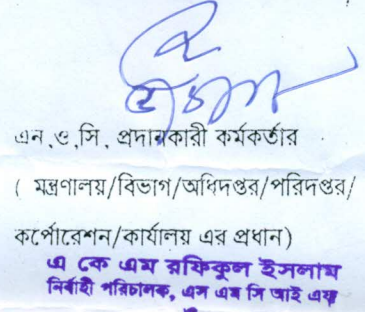 এন,ও,সি, প্রদানকারী কর্মকর্তার
( মন্ত্রণালয়/বিভাগ/অধিদপ্তর/পরিদপ্তর/
কর্পোরেশন/কার্যালয় এর প্রধান)
এ কে এম রফিকুল ইসলাম
নির্বাহী পরিচালক, এস এম সি আই এফ